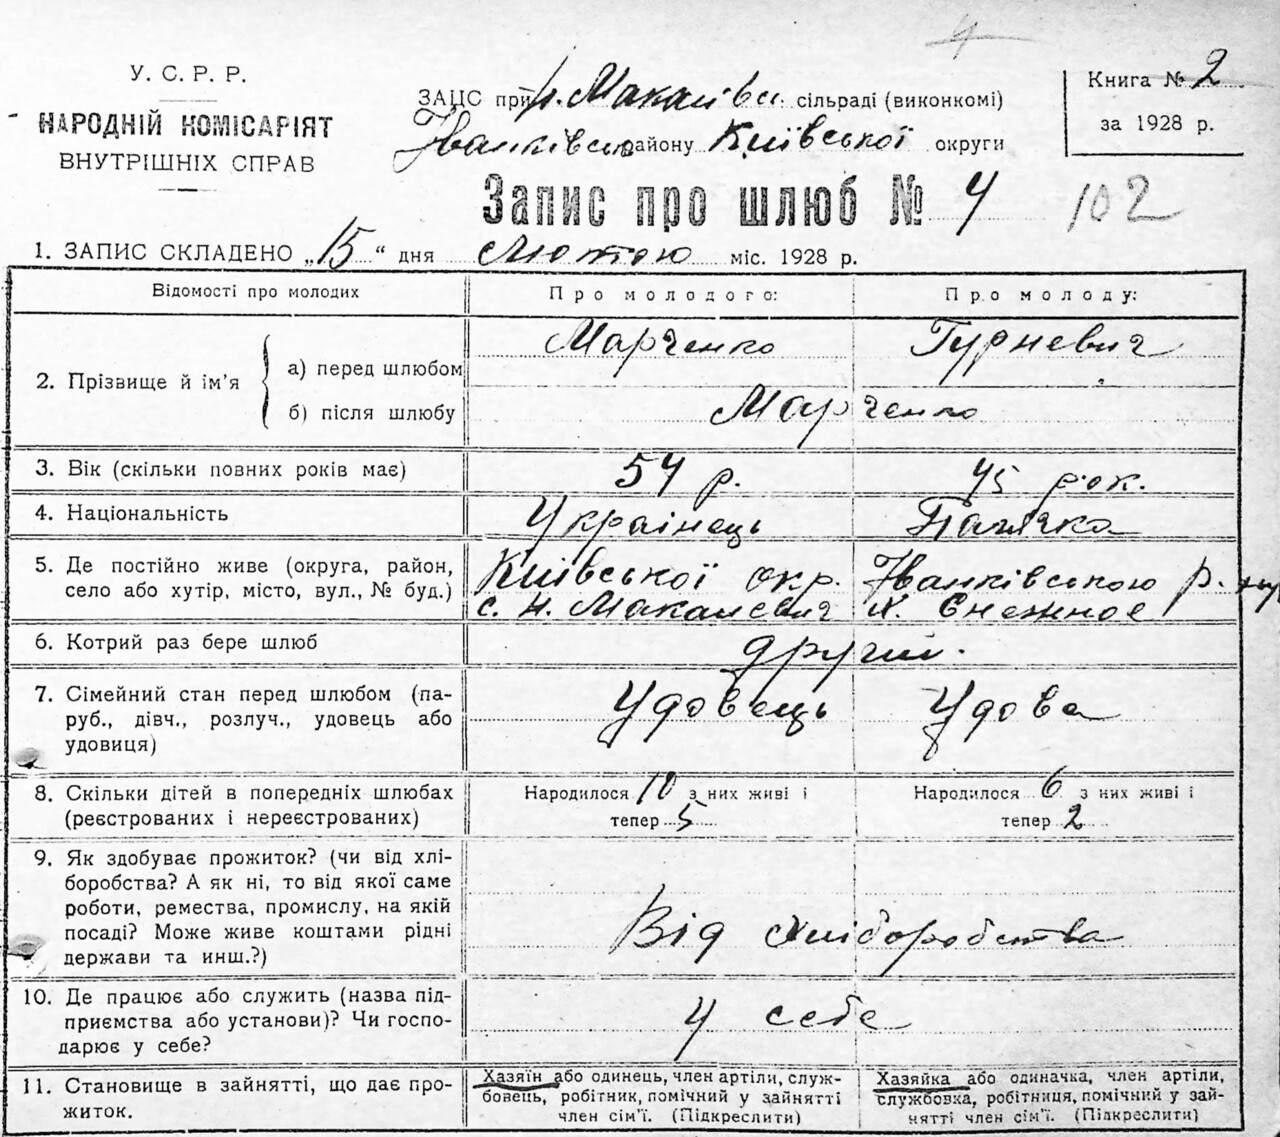 4
У. С. Р. Р.
НАРОДНІЙ КОМІСАРІЯТ
ВНУТРІШНІХ СПРАВ
ЗАЦС при Макалівс. сільраді (виконкомі)
Іванківсько району Київської округи
Книга № 2
за 1928 р.
Запис про шлюб № 4 102
1. ЗАПИС СКЛАДЕНО „15“ дня Лютого міс. 1928 р.
Відомості про молодих Про молодого: Про молоду:
2. Прізвище й ім'я
а) перед шлюбом Марченко Гурневич
б) після шлюбу Марченко
3. Вік (скільки повних років має) 54 р. 45 рок.
4. Національність Українець Полячка
5. Де постійно живе (округа, район, Київської окр. Іванківського р.
село або хутір, місто, вул., № буд.) с. н. Макалевич х. Снежное
6. Котрий раз бере шлюб другий.
7. Сімейний стан перед шлюбом (па-
руб., дівч., розлуч., удовець або Удовець Удова
удовиця)
8. Скільки дітей в попередніх шлюбах Народилося 10 з них живі і Народилося 6 з них живі і
(реєстрованих і нереєстрованих) тепер 5 тепер 2
9. Як здобуває прожиток? (чи від хлі-
боробства? А як ні, то від якої саме
роботи, ремества, промислу, на якій
посаді? Може живе коштами рідні Від хліборобства
держави та инш.?)
10. Де працює або служить (назва під-
приємства або установи)? Чи госпо- У себе
дарює у себе?
11. Становище в зайнятті, що дає про- Хазяїн або одинець, член артіли, служ- Хазяйка або одиначка, член артіли,
житок. бовець, робітник, помічний у зайнятті службовка, робітниця, помічний у зай-
член сім'ї. (Підкреслити) нятті член сім'ї. (Підкреслити)